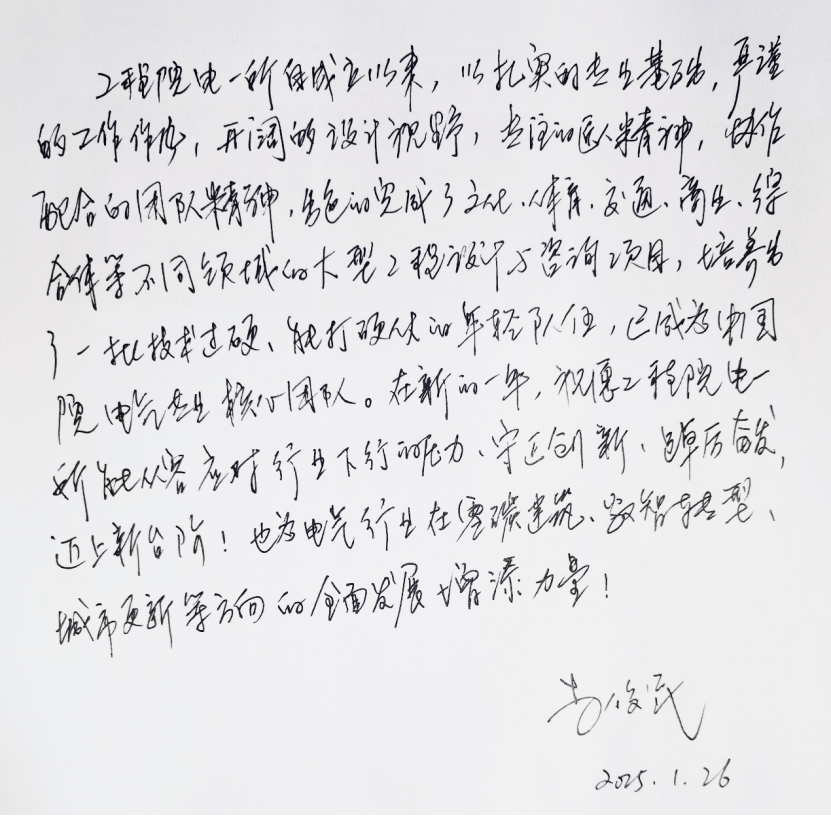 工程院电一所自成立以来，以扎实的专业基础，严谨
的工作作风，开阔的设计视野，专注的匠人精神，协作
配合的团队精神，出色的完成了文化、体育、交通、商业、综
合体等不同领域的大型工程设计与咨询项目，培养出
了一批技术过硬、能打硬仗的年轻队伍，已成为中国
院电气专业核心团队。在新的一年，祝愿工程院电一
所能从容应对行业下行的压力、守正创新、踔厉奋发，
迈上新台阶！也为电气行业在零碳建筑、数智转型、
城市更新等方向的全面发展增添力量！
俊民
2025.1.26